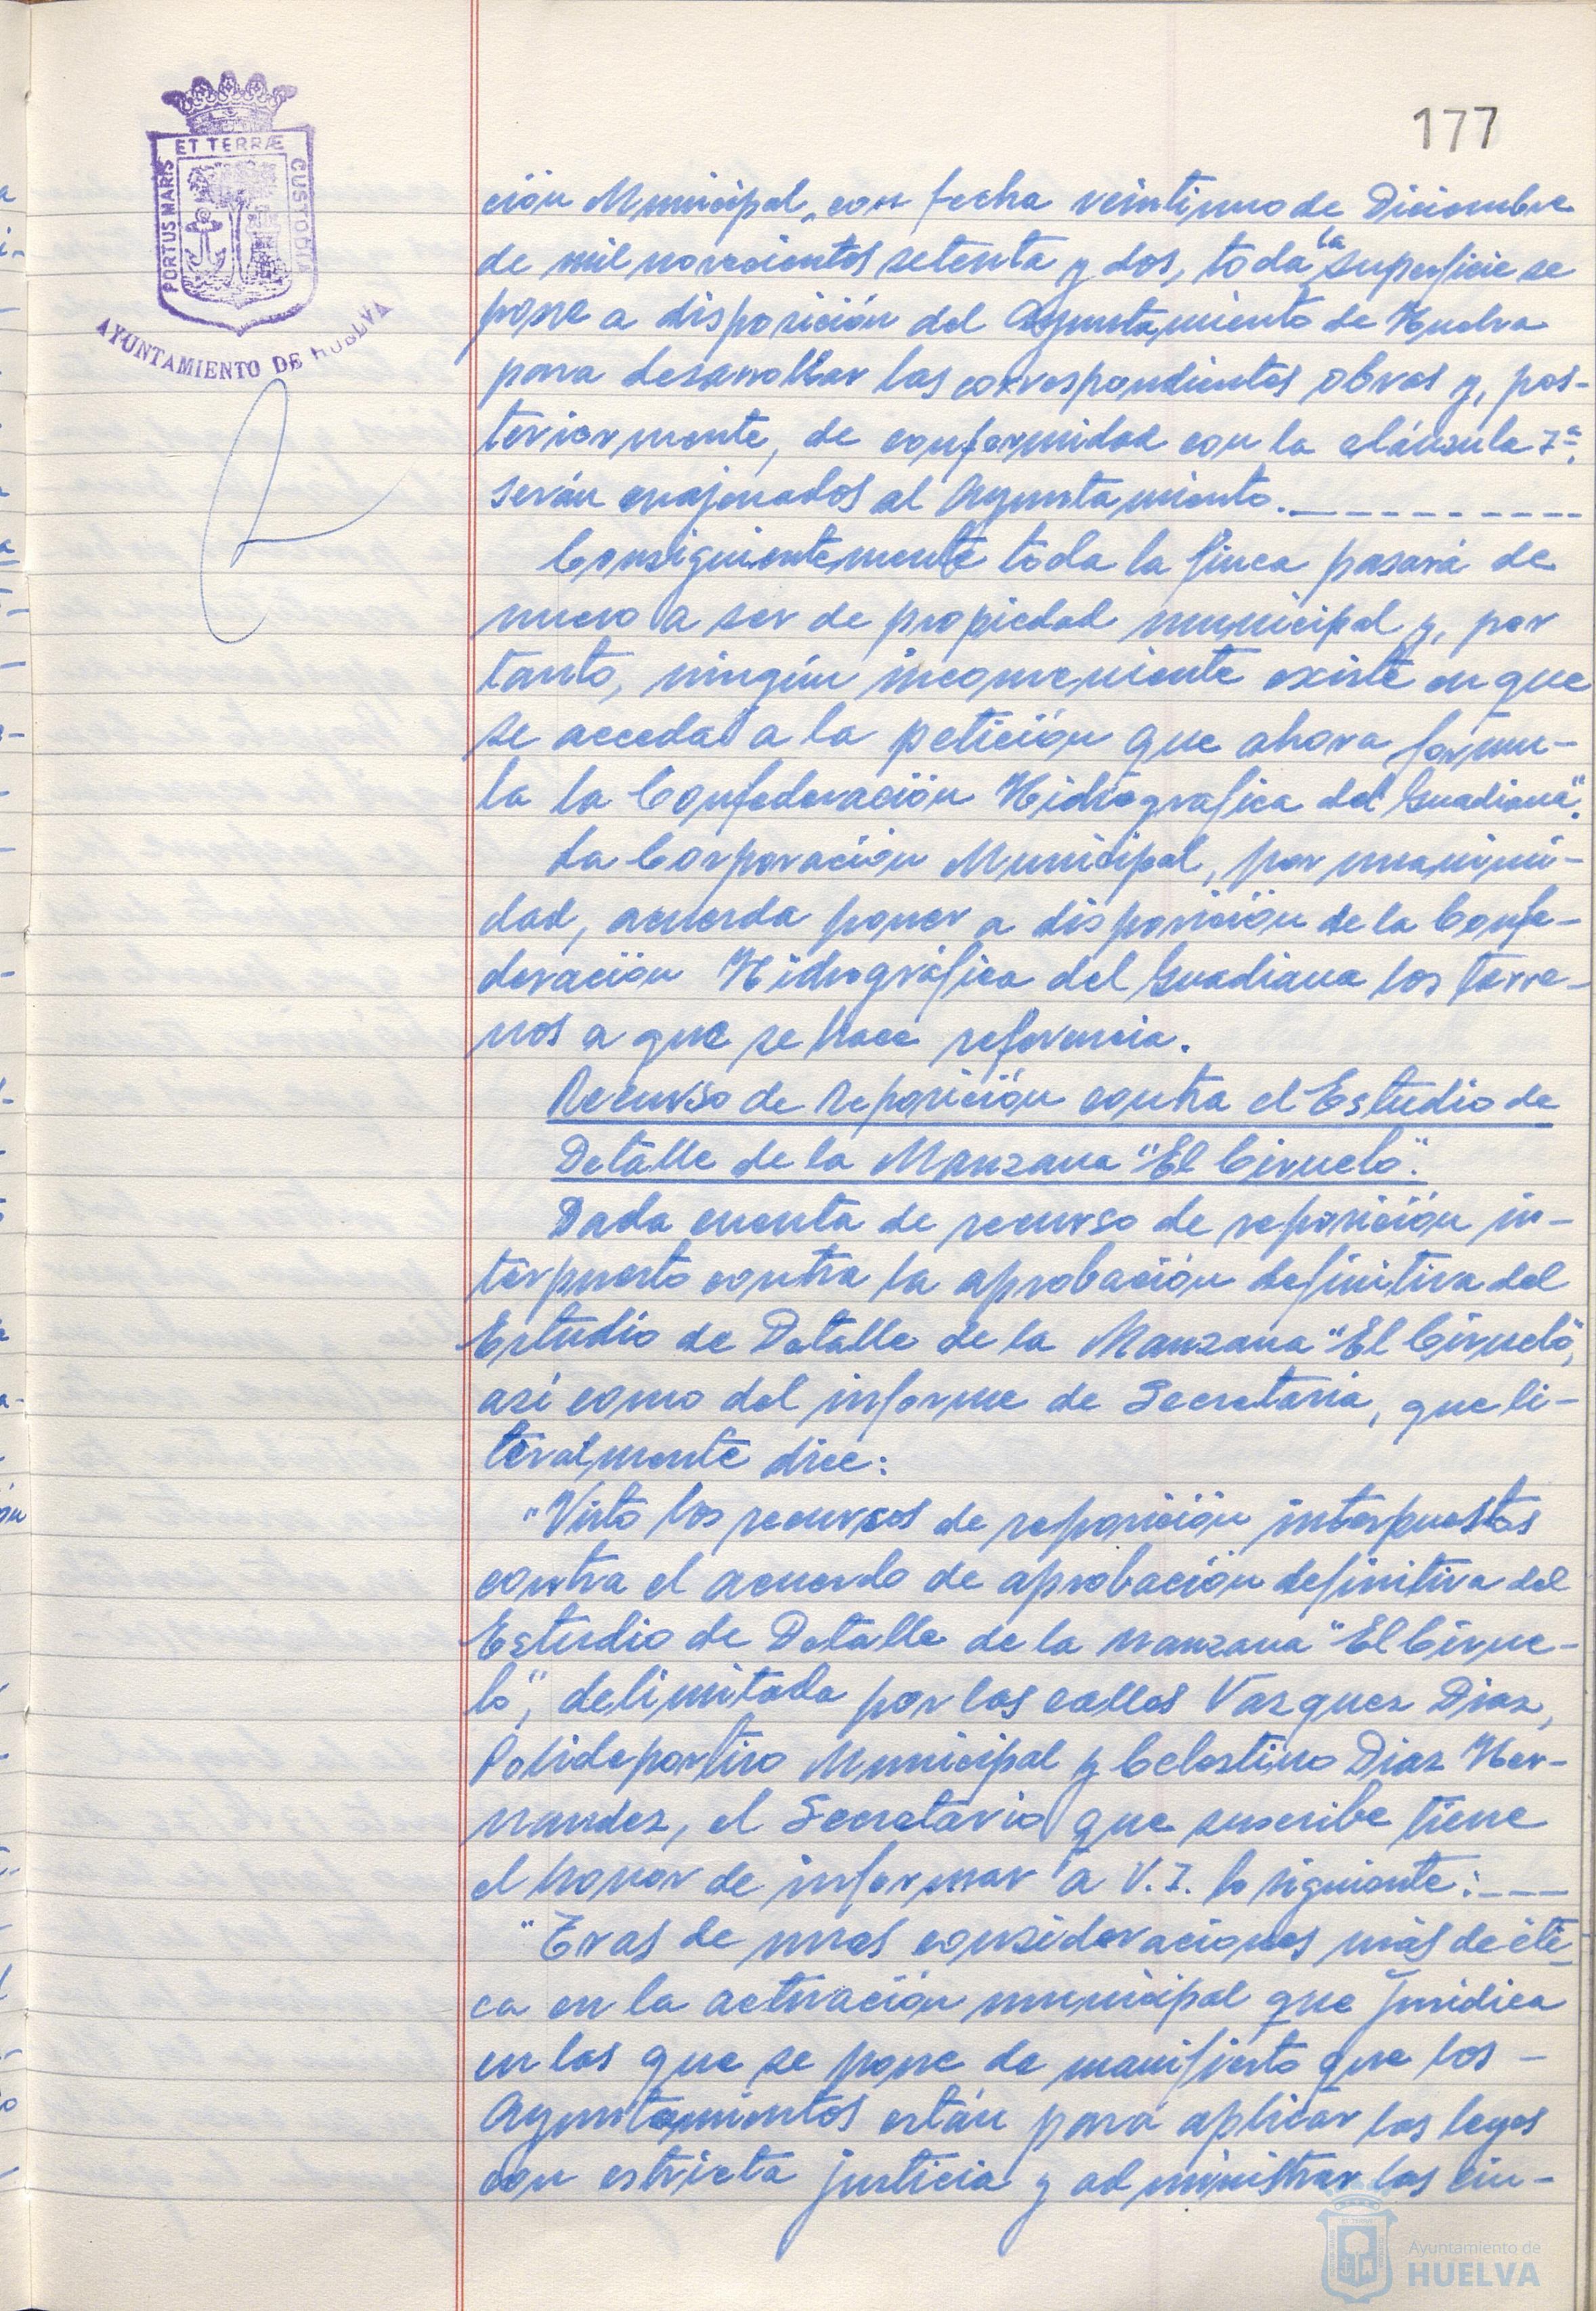 177
ET TERRÆ
PORTUS MARIS
CUSTODIA
AYUNTAMIENTO DE HUELVA
ción Municipal, con fecha veintiuno de Diciembre
de mil novecientos setenta y dos, toda la superficie se
pone a disposición del Ayuntamiento de Huelva
para desarrollar las correspondientes obras y, pos-
teriormente, de conformidad con la cláusula 7ª,
serán enajenados al Ayuntamiento.
Consiguientemente toda la finca pasará de
nuevo a ser de propiedad municipal y, por
tanto, ningún inconveniente existe en que
se acceda a la petición que ahora formu-
la la Confederación Hidrográfica del Guadiana".
La Corporación Municipal, por unanimi-
dad, acuerda poner a disposición de la Confe-
deración Hidrográfica del Guadiana los terre-
nos a que se hace referencia.
Recurso de reposición contra el Estudio de
Detalle de la Manzana "El Ciruelo".
Dada cuenta de recurso de reposición in-
terpuesto contra la aprobación definitiva del
Estudio de Detalle de la Manzana "El Ciruelo",
así como del informe de Secretaría, que li-
teralmente dice:
"Visto los recursos de reposición interpuestos
contra el acuerdo de aprobación definitiva del
Estudio de Detalle de la manzana "El Cirue-
lo", delimitada por las calles Vazquez Diaz,
Polideportivo Municipal y Celestino Diaz Her-
nandez, el Secretario que suscribe tiene
el honor de informar a V.I. lo siguiente:
"Tras de unas consideraciones más de éti-
ca en la actuación municipal que jurídica
en las que se pone de manifiesto que los -
Ayuntamientos están para aplicar las leyes
con estricta justicia y administrar las ciu-
Ayuntamiento de
HUELVA